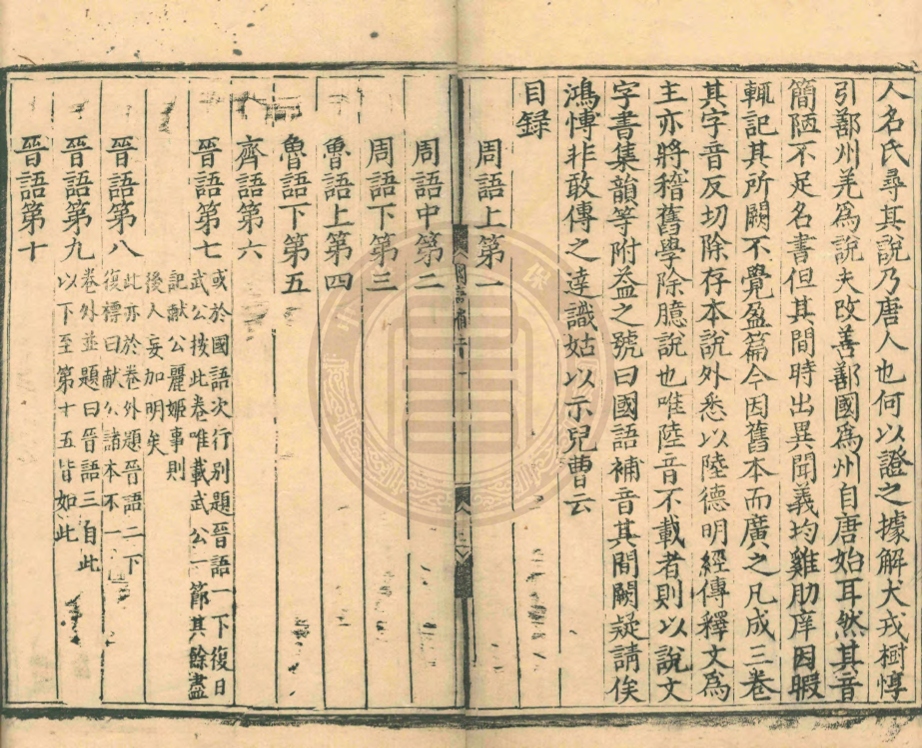 人名氏尋其說乃唐人也何以證之據解犬戎樹惇
引鄯州羌為說夫改善鄯國為州自唐始耳然其音
簡陋不足名書但其間時出異聞義均雞肋庠因暇
輒記其所闕不覺盈篇今因舊本而廣之凡成三卷
其字音反切除存本說外悉以陸德明經傳釋文為
主亦將稽舊學除臆說也唯陸音不載者則以說文
字書集韻等附益之號曰國語補音其間闕疑請俟
鴻博非敢傳之達識姑以示兒曹云
目録
周語上第一
周語中第二
周語下第三
魯語上第四
魯語下第五
齊語第六
晉語第七
或於國語次行別題晉語一下復曰
武公按此卷唯載武公一節其餘盡
記献公麗姬事則
後人妄加明矣
晉語第八
此亦於卷外題晉語二下
復標曰献公諸本不一
晉語第九
卷外並題曰晉語三自此
以下至第十五皆如此
晉語第十